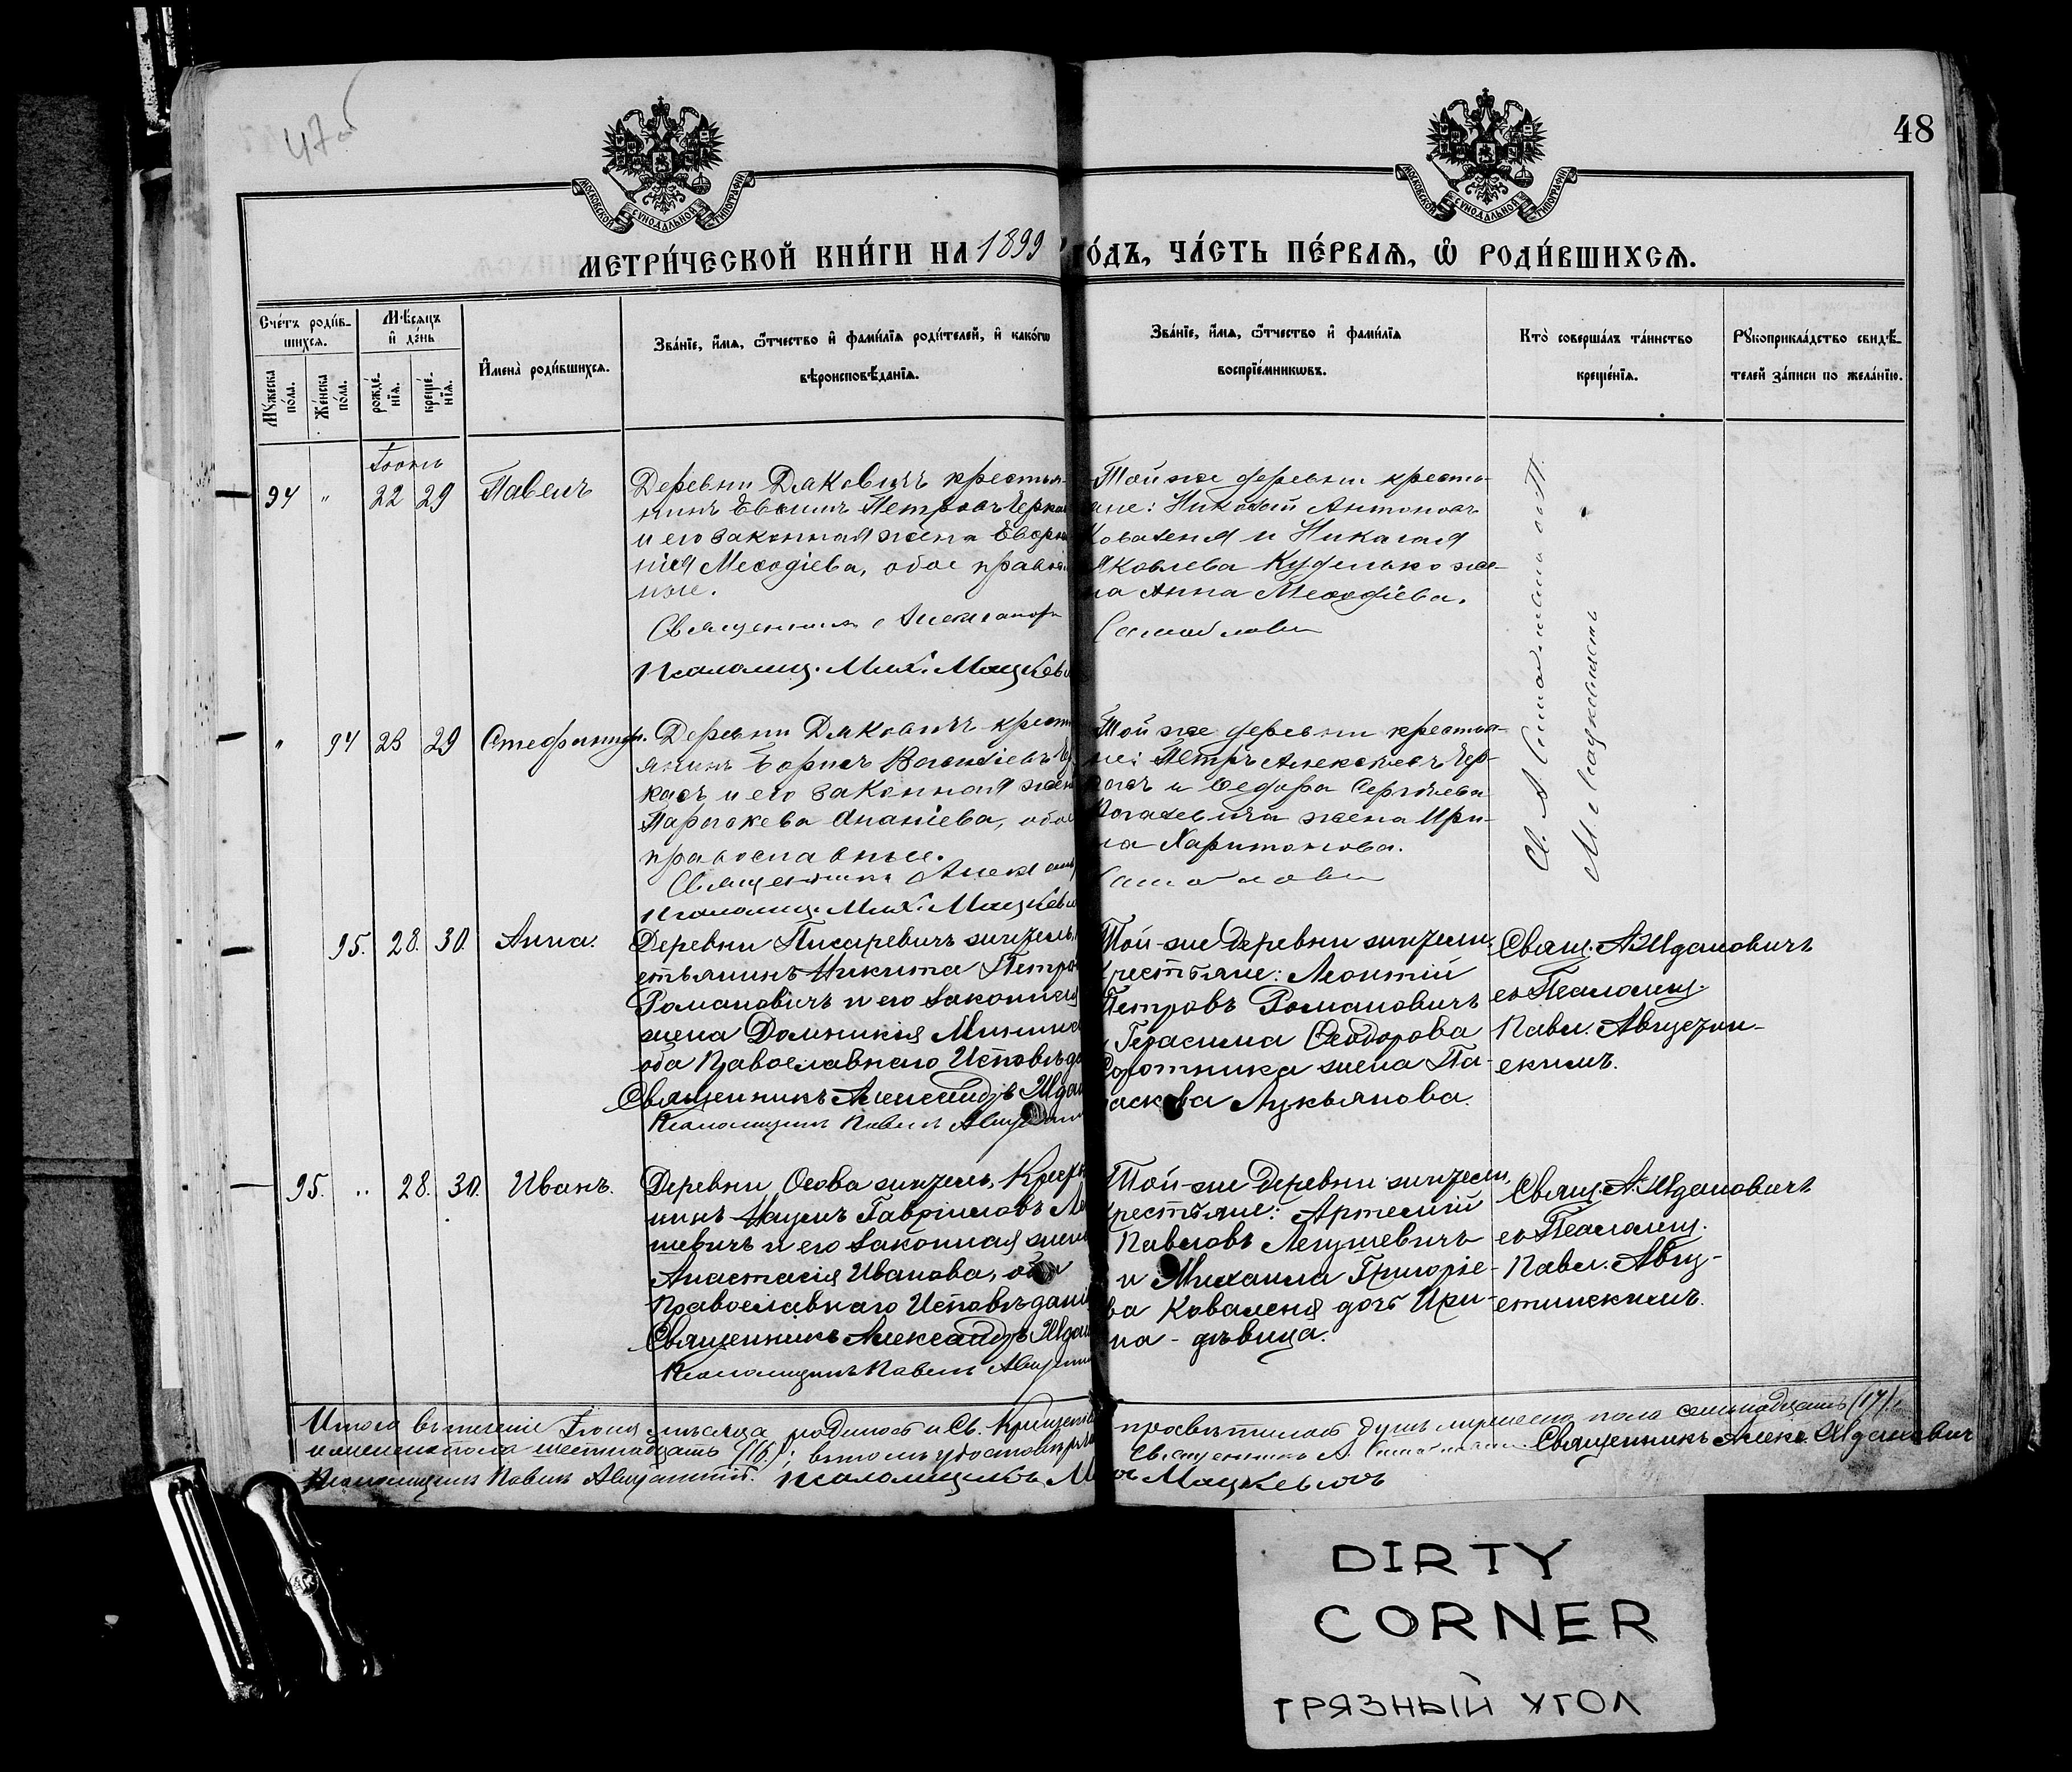 47об
48
МОСКОВСКОЙ СѴНОДАЛЬНОЙ ТИПОГРАФІИ
МОСКОВСКОЙ СѴНОДАЛЬНОЙ ТИПОГРАФІИ
МЕТРИ́ЧЕСКОЙ КНИ́ГИ НА 1899 ГО́ДЪ, ЧА́СТЬ ПЕ́РВАЯ, Ѡ҆ РОДИ́ВШИХСЯ.
Сче́тъ роди́в-
шихся.
Му́жеска по́ла.
Же́нска по́ла.
Мѣ́сяцъ и҆ де́нь
рожде́-нїя.
креще́-нїя.
И҆мена̀ роди́вшихся.
Зва́нїе, и҆́мя, ѻ҆́тчество и҆ фами́лїя роди́телей, и҆ како́гѡ
вѣроисповѣ́данїя.
Зва́нїе, и҆́мя, ѻ҆́тчество и҆ фами́лїя
воспрїе́мникѡвъ.
Кто̀ соверша́лъ та́инство
креще́нїя.
Рꙋкоприкла́дство свидѣ́-
телей за́писи по жела́нїю.
Іюнь
94 " 22 29 Павелъ
Деревни Дяковичъ крестья-
нинъ Евсимъ Петровъ Черка
и его законная жена Евфи
нія Меѳодіева, обое правосла
ные.
Священникъ Александръ
Псаломщ. Мих. Мацкеви
Той же деревни крестья-
ане: Николай Антоновъ
Коваленя и Николая
Яковлева Куделько же-
на Анна Меѳодіева.
Самойлович
" 94 23 29 Стефанида.
Деревни Дяковичъ крест
янинъ Борисъ Васильевъ Чер
касъ и его законная жена
Параскева Ананіева, обое
православные.
Священникъ Александръ
Псаломщ. Мих. Мацкеви
Той же деревни крестья-
не: Петръ Алексѣевъ Чер-
касъ и Ѳедора Сергѣева
жена Ири-
на Харитонова.
95. 28. 30. Анна.
Деревни Писаревичъ
естьянинъ Никита Петро
Романовичъ и его законная
жена Домникія Минина
оба Православнаго Исповѣда
Священникъ Александръ Ждан
Псаломщикъ Павелъ
Той-же деревни
крестьяне: Леонтій
Петровъ Романовичъ
и Герасима Ѳеодорова
Сротника жена Па-
раскева Лукьянова.
Свящ. А. Ждановичъ
съ Псаломщ.
Павл. Авцезин-
скимъ.
95. " 28. 30. Иванъ.
Деревни Осова
нинъ Наумъ Гавріиловъ Ле
шевичъ и его законная жена
Анастасія Иванова, оба
Православнаго Исповѣданія
Священникъ Александръ Ждан
Псаломщикъ Павелъ
Той-же деревни
крестьяне: Артемій
Павловъ Лепушевичъ
и Михаила Григорье-
ва Коваленя дочь Ири-
на - дѣвица.
Свящ. А. Ждановичъ
съ Псаломщ.
Павл.
Итого въ теченіе Іюня мѣсяца родилось и Св. Крещеніемъ просвѣтилось душъ мужеска пола семнадцать (17) и
женска пола шестнадцать (16); въ томъ удостовѣряемъ Священникъ А. Священникъ Алекс. Ждановичъ
Псаломщикъ Павелъ Псаломщикъ Мих Мацкевичъ
DIRTY
CORNER
ГРЯЗНЫЙ УГОЛ